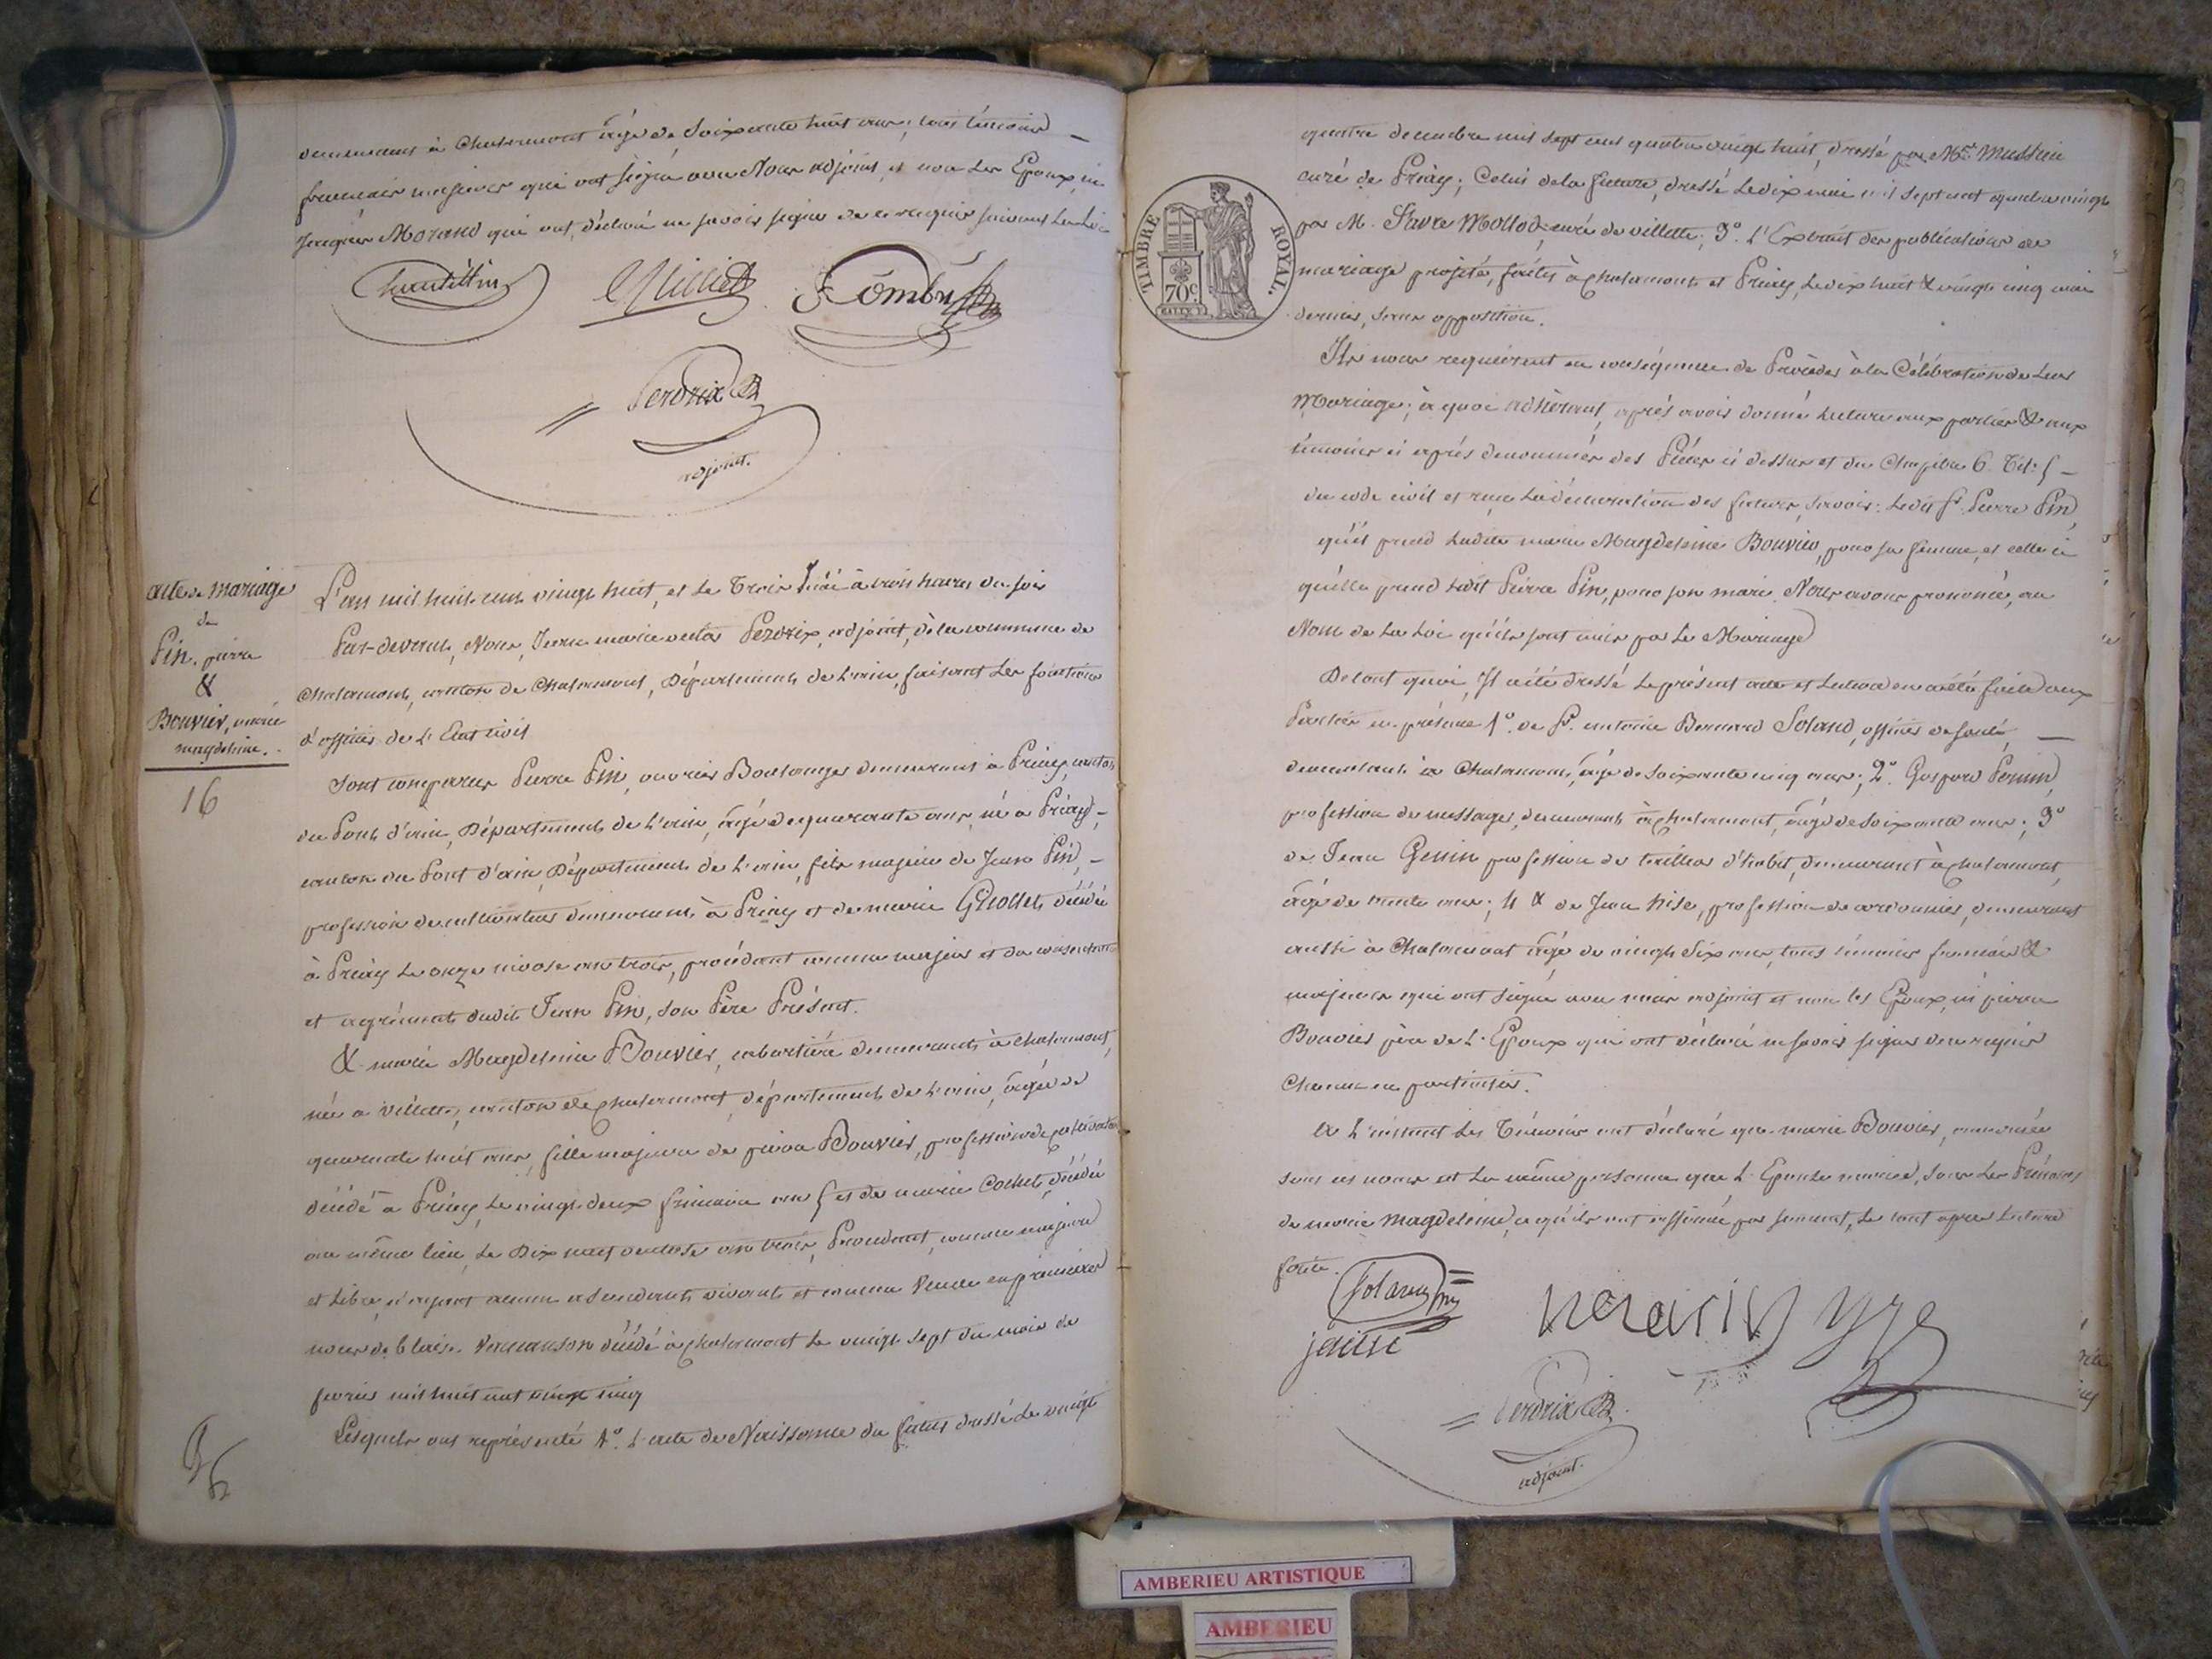 demeurant à Chalamont âgé de Soixante huit ans; tous témoins
français majeurs qui ont signé avec Nous adjoint, et non les Epoux, ni
Jacques Morand qui ont déclaré ne savoir signer de ce requis suivant la Loi
Perdrix
adjoint.
acte de mariage
de
Pin, pierre
&
Bouvier, marie
magdeleine.
16
L'an mil huit cent vingt huit, et le Trois à trois heures du soir
Par-devant, Nous, Jean marie Perdrix, adjoint, de la commune de
Chalamont, canton de Chalamont, Département de l'ain, faisant les fonctions
d'officier de l'Etat civil
Sont comparus Pierre Pin, ouvrier Boulanger demeurant à Priay, canton
du Pont d'ain, Département de l'ain, âgé de quarante ans, né à Priay,
canton du Pont d'ain, Département de l'ain, fils majeur de Jean Pin,
profession de cultivateur demeurant à Priay et de marie décédée
à Priay le onze nivose an trois, procédant comme majeur et du consentement
et agrément dudit Jean Pin, son Père Présent.
& marie Magdeleine Bouvier, cabartière demeurant à Chalamont,
née à Villette, canton de Chalamont, département de l'ain, âgée de
quarante huit ans, fille majeure de pierre Bouvier, profession de cultivateur
décédé à Priay, le vingt deux frimaire an 5 et de marie Cochet, décédée
au même lieu, le Dix ventose an trois, Procédant, comme majeure
et libre n'ayant aucun ascendants vivants et comme Veuve en premières
noces de blaise décédé à Chalamont le vingt sept du mois de
fevrier mil huit cent vingt cinq
Lesquels ont représenté 1º. L'acte de Naissance du futur dressé le vingt
TIMBRE ROYAL.
70c
quatre decembre mil sept cent quatre vingt huit, dressé par Mr.
curé de Priay; Celui de la future, dressé le dix mai mil sept cent quatre vingt
par M. curé de villette; 3º. L'Extrait des publications de
mariage projeté, faites à Chalamont et Priay, le dix huit & vingt cinq mai
dernier, sans opposition.
Ils nous requièrent en conséquence de Procéder à la Célébration de leur
Mariage; à quoi adhérant, après avoir donné lecture aux parties & aux
témoins ci après denommés des Pièces ci dessus et du Chapitre 6. Tit: 5
du code civil et reçu la déclaration des futurs, savoir: Ledit Sr. Pierre Pin
qu'il prend ladite marie Magdeleine Bouvier, pour sa femme, et celle ci
qu'elle prend ledit Pierre Pin, pour son mari. Nous avons prononcé, au
Nom de La Loi qu'ils sont unis par le Mariage
De tout quoi, Il a été dressé le présent acte et lecture en a été faite aux
Parties en présence 1º. de Sr. antoine Bernard Soland, officier de santé,
demeurant à Chalamont, âgé de soixante cinq ans; 2º. Gaspard
profession de messager, demeurant à Chalamont, âgé de soixante ans; 3º
de Jean Genin profession de tailleur d'habit, demeurant à Chalamont,
âgé de trente ans; 4 & de Jean hise, profession de cordonnier, demeurant
aussi à Chalamont âgé de vingt Six ans, tous témoins français &
majeurs qui ont signé avec nous adjoint et non les Epoux, ni pierre
Bouvier père de L'Epoux qui ont déclaré ne savoir signer de ce requis
Chacun en particulier.
& à l'instant les Témoins ont déclaré que marie Bouvier, nommée
sous ces noms est la même personne que L'Epouse mariée, sous les Prénoms
de marie Magdeleine, ce qu'ils ont affirmé par serment, le tout après lecture
faite.
Perdrix
adjoint.
AMBERIEU ARTISTIQUE
AMBERIEU